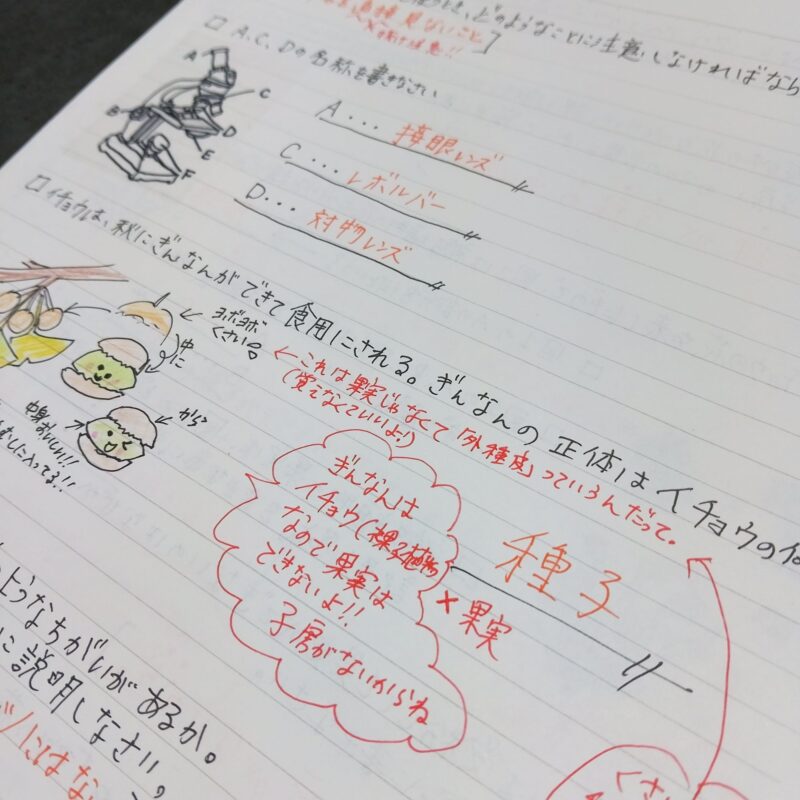 どのようなことに注意しなければなら
見ないこと
□ A、C、Dの名称を書きなさい
A
B
C
D
E
F
A・・・接眼レンズ
C・・・レボルバー
D・・・対物レンズ
□ イチョウは、秋にぎんなんができて食用にされる。ぎんなんの正体はイチョウの何
ヨボヨボ
くさい
中に
から
中身おいしい!!
むしに入ってる!!
←これは果実じゃなくて「外種皮」っていうんだって。
(覚えなくていいよ!)
ぎんなんは
イチョウ(裸子植物)
なので果実は
できないよ!!
子房がないからね
種子
×果実
ようなちがいがあるか。
に説明しなさい。
くさい